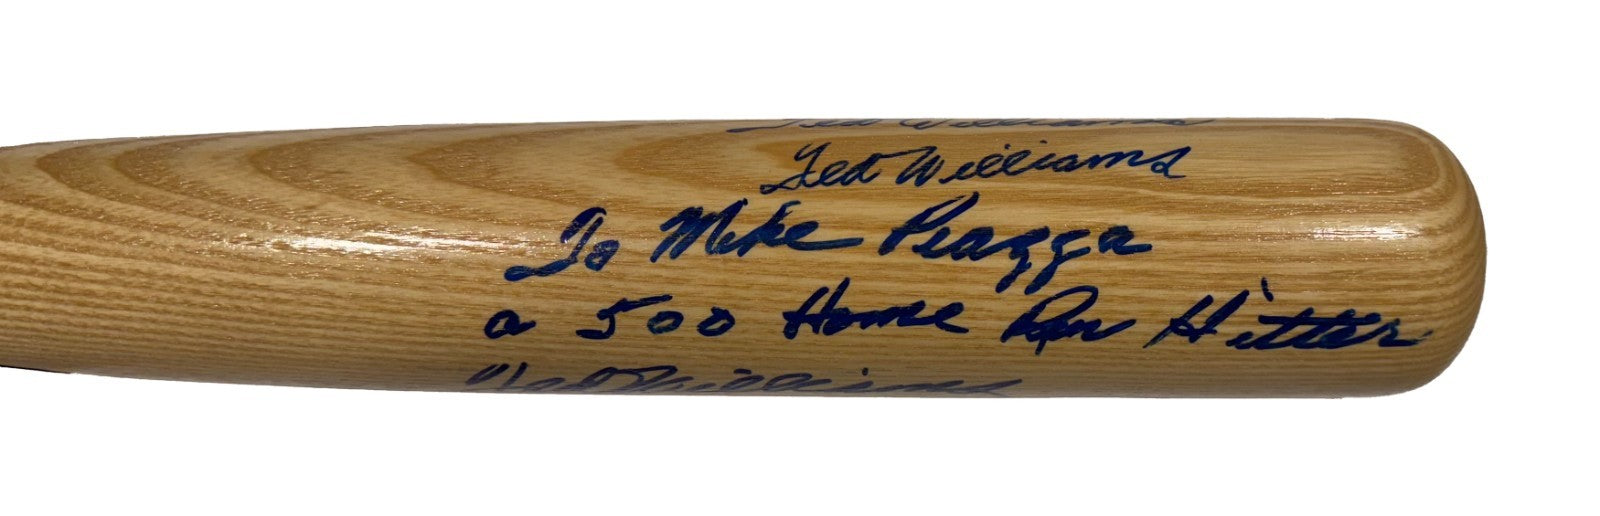 Ted Williams
Ted Williams
To Mike Piazza
a 500 Home Run Hitter
Ted Williams